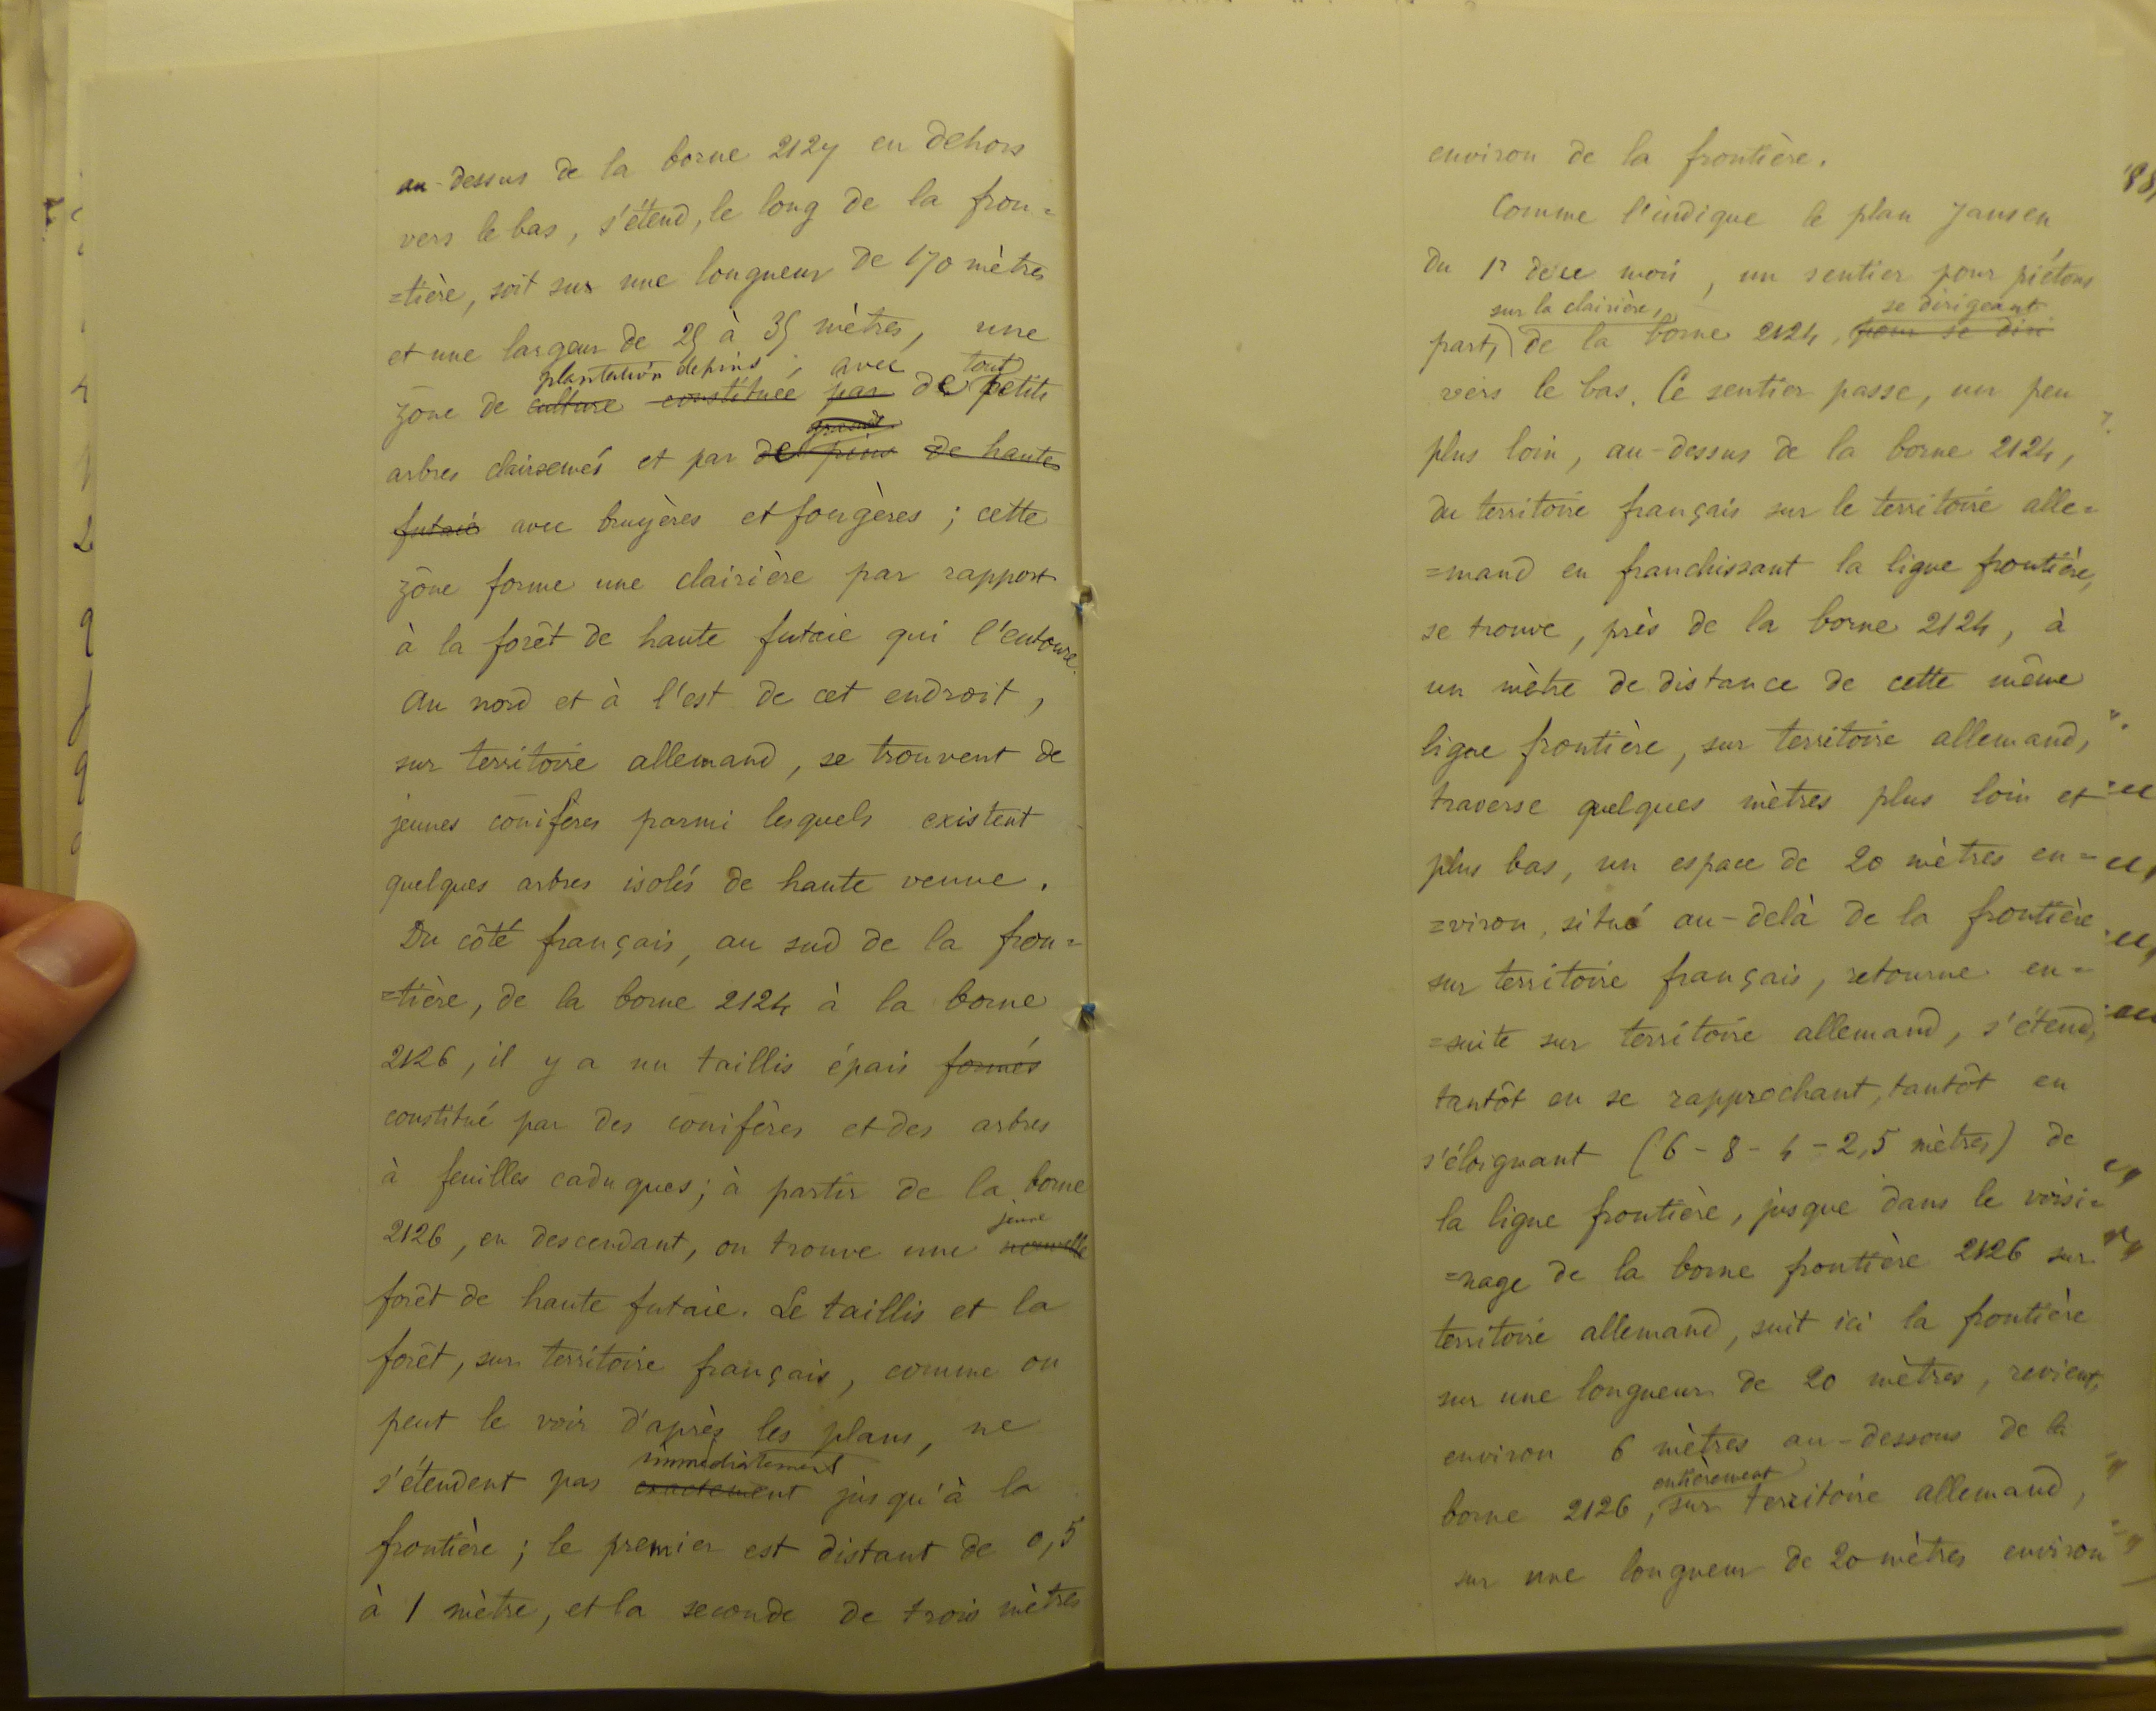 au-dessus de la borne 2127 en dehors
vers le bas, s'étend, le long de la fron=
=tière, soit sur une longueur de 170 mètres
et une largeur de 25 à 35 mètres, une
plantation de pins ; avec tout
zône de culture constituée par de petits
arbres clairsemés et par de pins de hautes
futaie avec bruyères et fougères ; cette
zône forme une clairière par rapport
à la forêt de haute futaie qui l'entoure.
Au nord et à l'est de cet endroit,
sur territoire allemand, se trouvent de
jeunes conifères parmi lesquels existent
quelques arbres isolés de haute venue.
Du côté français, au sud de la fron=
=tière, de la borne 2124 à la borne
2126, il y a un taillis épais formés
constitué par des conifères et des arbres
à feuilles caduques ; à partir de la borne
jeune
2126, en descendant, on trouve une nouvelle
forêt de haute futaie. Le taillis et la
forêt, sur territoire français, comme on
peut le voir d'après les plans, ne
immédiatement
s'étendent pas exactement jusqu'à la
frontière ; le premier est distant de 0,5
à 1 mètre, et la seconde de trois mètres
environ de la frontière.
Comme l'indique le plan Jansen
du 1r de ce mois, un sentier pour piétons
sur la clairière, se dirigeant
part, de la borne 2124, pour se diri
vers le bas. Ce sentier passe, un peu
plus loin, au-dessus de la borne 2124,
du territoire français sur le territoire alle=
=mand en franchissant la ligne frontière,
se trouve, près de la borne 2124, à
un mètre de distance de cette même
ligne frontière, sur territoire allemand,
traverse quelques mètres plus loin et
plus bas, un espace de 20 mètres en=
=viron, situé au-delà de la frontière
sur territoire français, retourne en=
=suite sur territoire allemand, s'étend,
tantôt en se rapprochant, tantôt en
s'éloignant (6 - 8 - 4 - 2,5 mètres) de
la ligne frontière, jusque dans le voisi=
=nage de la borne frontière 2126 sur
territoire allemand, suit ici la frontière
sur une longueur de 20 mètres, revient,
environ 6 mètres au-dessous de la
entièrement
borne 2126, sur territoire allemand,
sur une longueur de 20 mètres environ